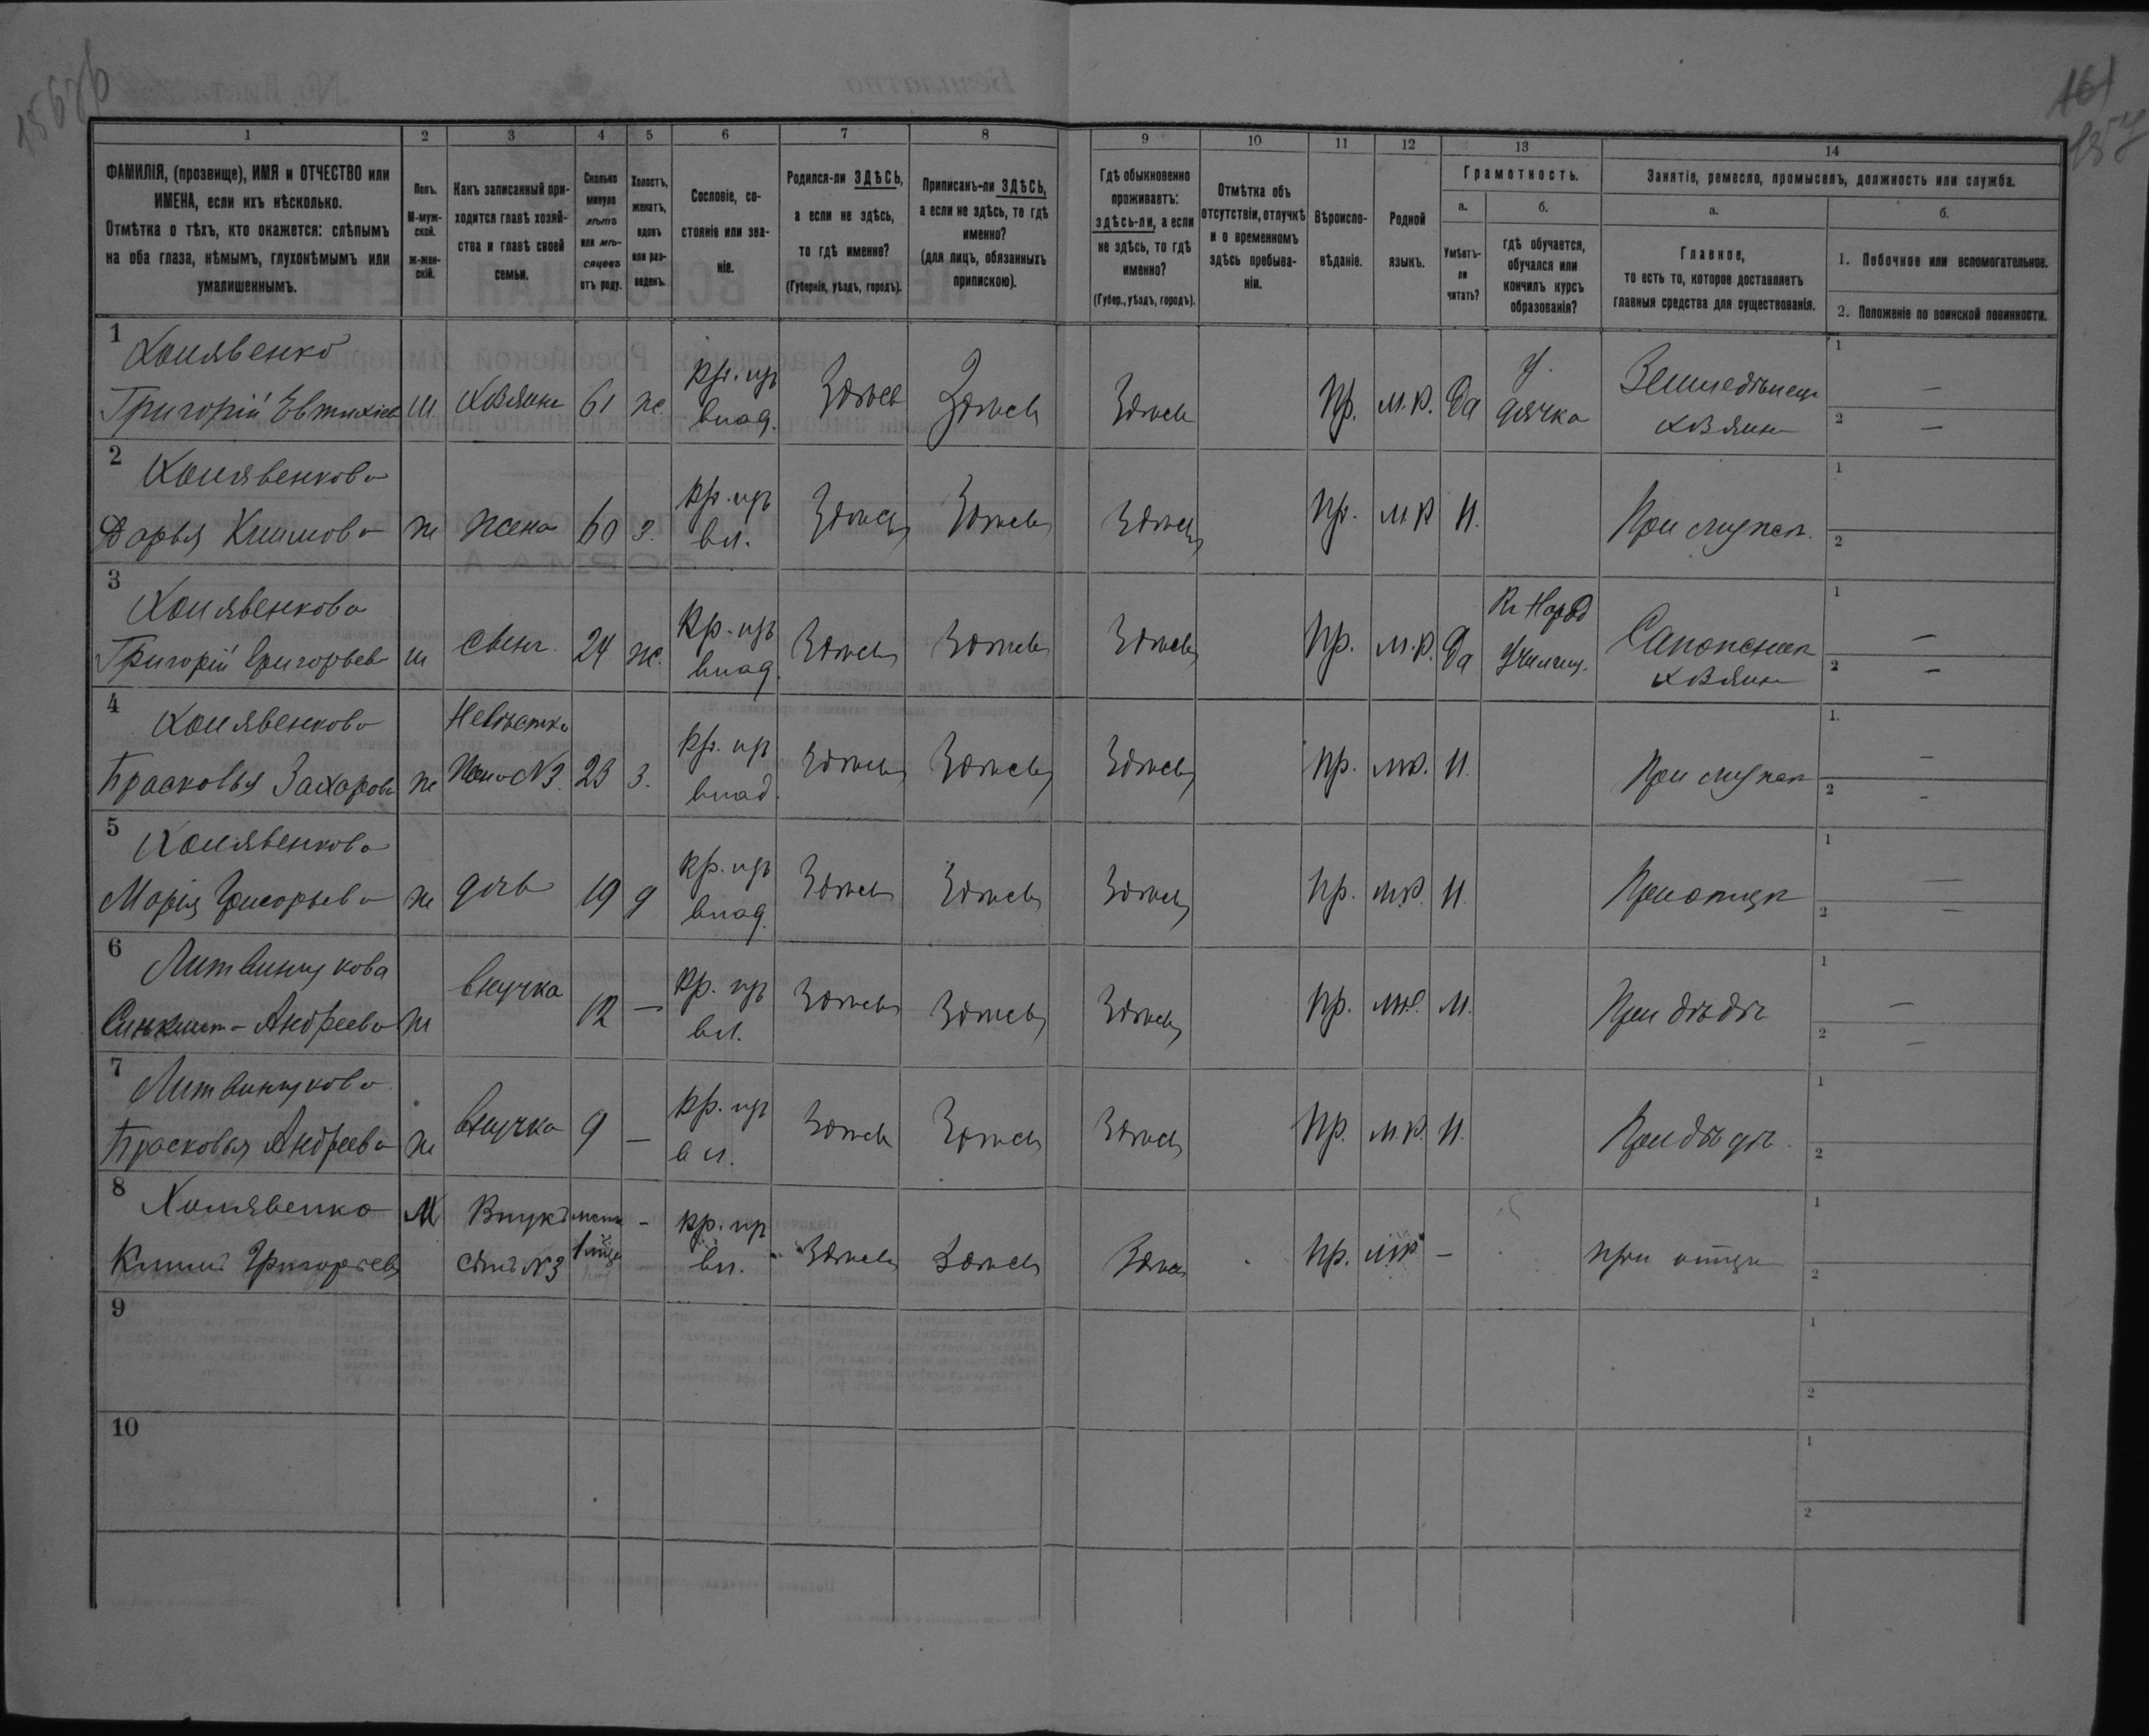 156 об
161
157
1 2 3 4 5 6 7 8 9 10 11 12 13 14
ФАМИЛІЯ, (прозвище), ИМЯ и ОТЧЕСТВО или
ИМЕНА, если ихъ нѣсколько.
Отмѣтка о тѣхъ, кто окажется: слѣпымъ
на оба глаза, нѣмымъ, глухонѣмымъ или
умалишеннымъ.
Полъ.
М-муж-
ской.
ж-жен-
скій.
Какъ записанный при-
ходится главѣ хозяй-
ства и главѣ своей
семьи.
Сколько
минуло
лѣтъ
или мѣ-
сяцевъ
отъ роду.
Холостъ,
женатъ,
вдовъ
или раз-
веденъ.
Сословіе, со-
стояніе или зва-
ніе.
Родился-ли ЗДѢСЬ,
а если не здѣсь,
то гдѣ именно?
(Губернія, уѣздъ, городъ).
Приписанъ-ли ЗДѢСЬ,
а если не здѣсь, то гдѣ
именно?
(для лицъ, обязанныхъ
припискою).
Гдѣ обыкновенно
проживаетъ:
здѣсь-ли, а если
не здѣсь, то гдѣ
именно?
(Губер., уѣздъ, городъ).
Отмѣтка объ
отсутствіи, отлучкѣ
и о временномъ
здѣсь пребыва-
ніи.
Вѣроиспо-
вѣданіе.
Родной
языкъ.
Грамотность.
а.
Умѣетъ-
ли
читать?
б.
гдѣ обучается,
обучался или
кончилъ курсъ
образованія?
Занятіе, ремесло, промыселъ, должность или служба.
а.
Главное,
то есть то, которое доставляетъ
главныя средства для существованія.
б.
1. Побочное или вспомогательное.
2. Положеніе по воинской повинности.
1
Григорій Евтихіев м Хозяин 61 ж. кр. из влад. Здѣсь Здѣсь Здѣсь Пр. м.р. Да У дячка Земледѣлец хозяин
1 —
2 —
2
Дарья Климова ж жена 60 з. кр. из вл. Здѣсь Здѣсь Здѣсь Пр. м.р. Н. При мужѣ.
1
2
3
Григорій Григорьев м Сынъ 24 ж. кр. из влад. Здѣсь Здѣсь Здѣсь Пр. м.р. Да В Народ Училищ. Сапожник хозяин
1 —
2 —
4
Прасковья Захарова ж Невѣстка Жена №3. 23 з. кр. из влад. Здѣсь Здѣсь Здѣсь Пр. м.р. Н. При мужѣ
1. —
2 -
5
Марія Григорьева ж дочь 19 д кр. из влад. Здѣсь Здѣсь Здѣсь Пр. м.р. Н. При отцѣ
1 —
2 —
6
Андреева ж внучка 12 — кр. из вл. Здѣсь Здѣсь Здѣсь Пр. м.р. Н. При дѣдѣ
1 —
2 —
7
Прасковья Андреева ж внучка 9 — кр. из вл. Здѣсь Здѣсь Здѣсь Пр. м.р. Н. При дѣдѣ.
1
2
8
Григорьев М Внукъ Сынъ №3 - кр. из вл. Здѣсь Здѣсь Здѣсь Пр. м.р. — При отцѣ
1
2
9
1
2
10
1
2